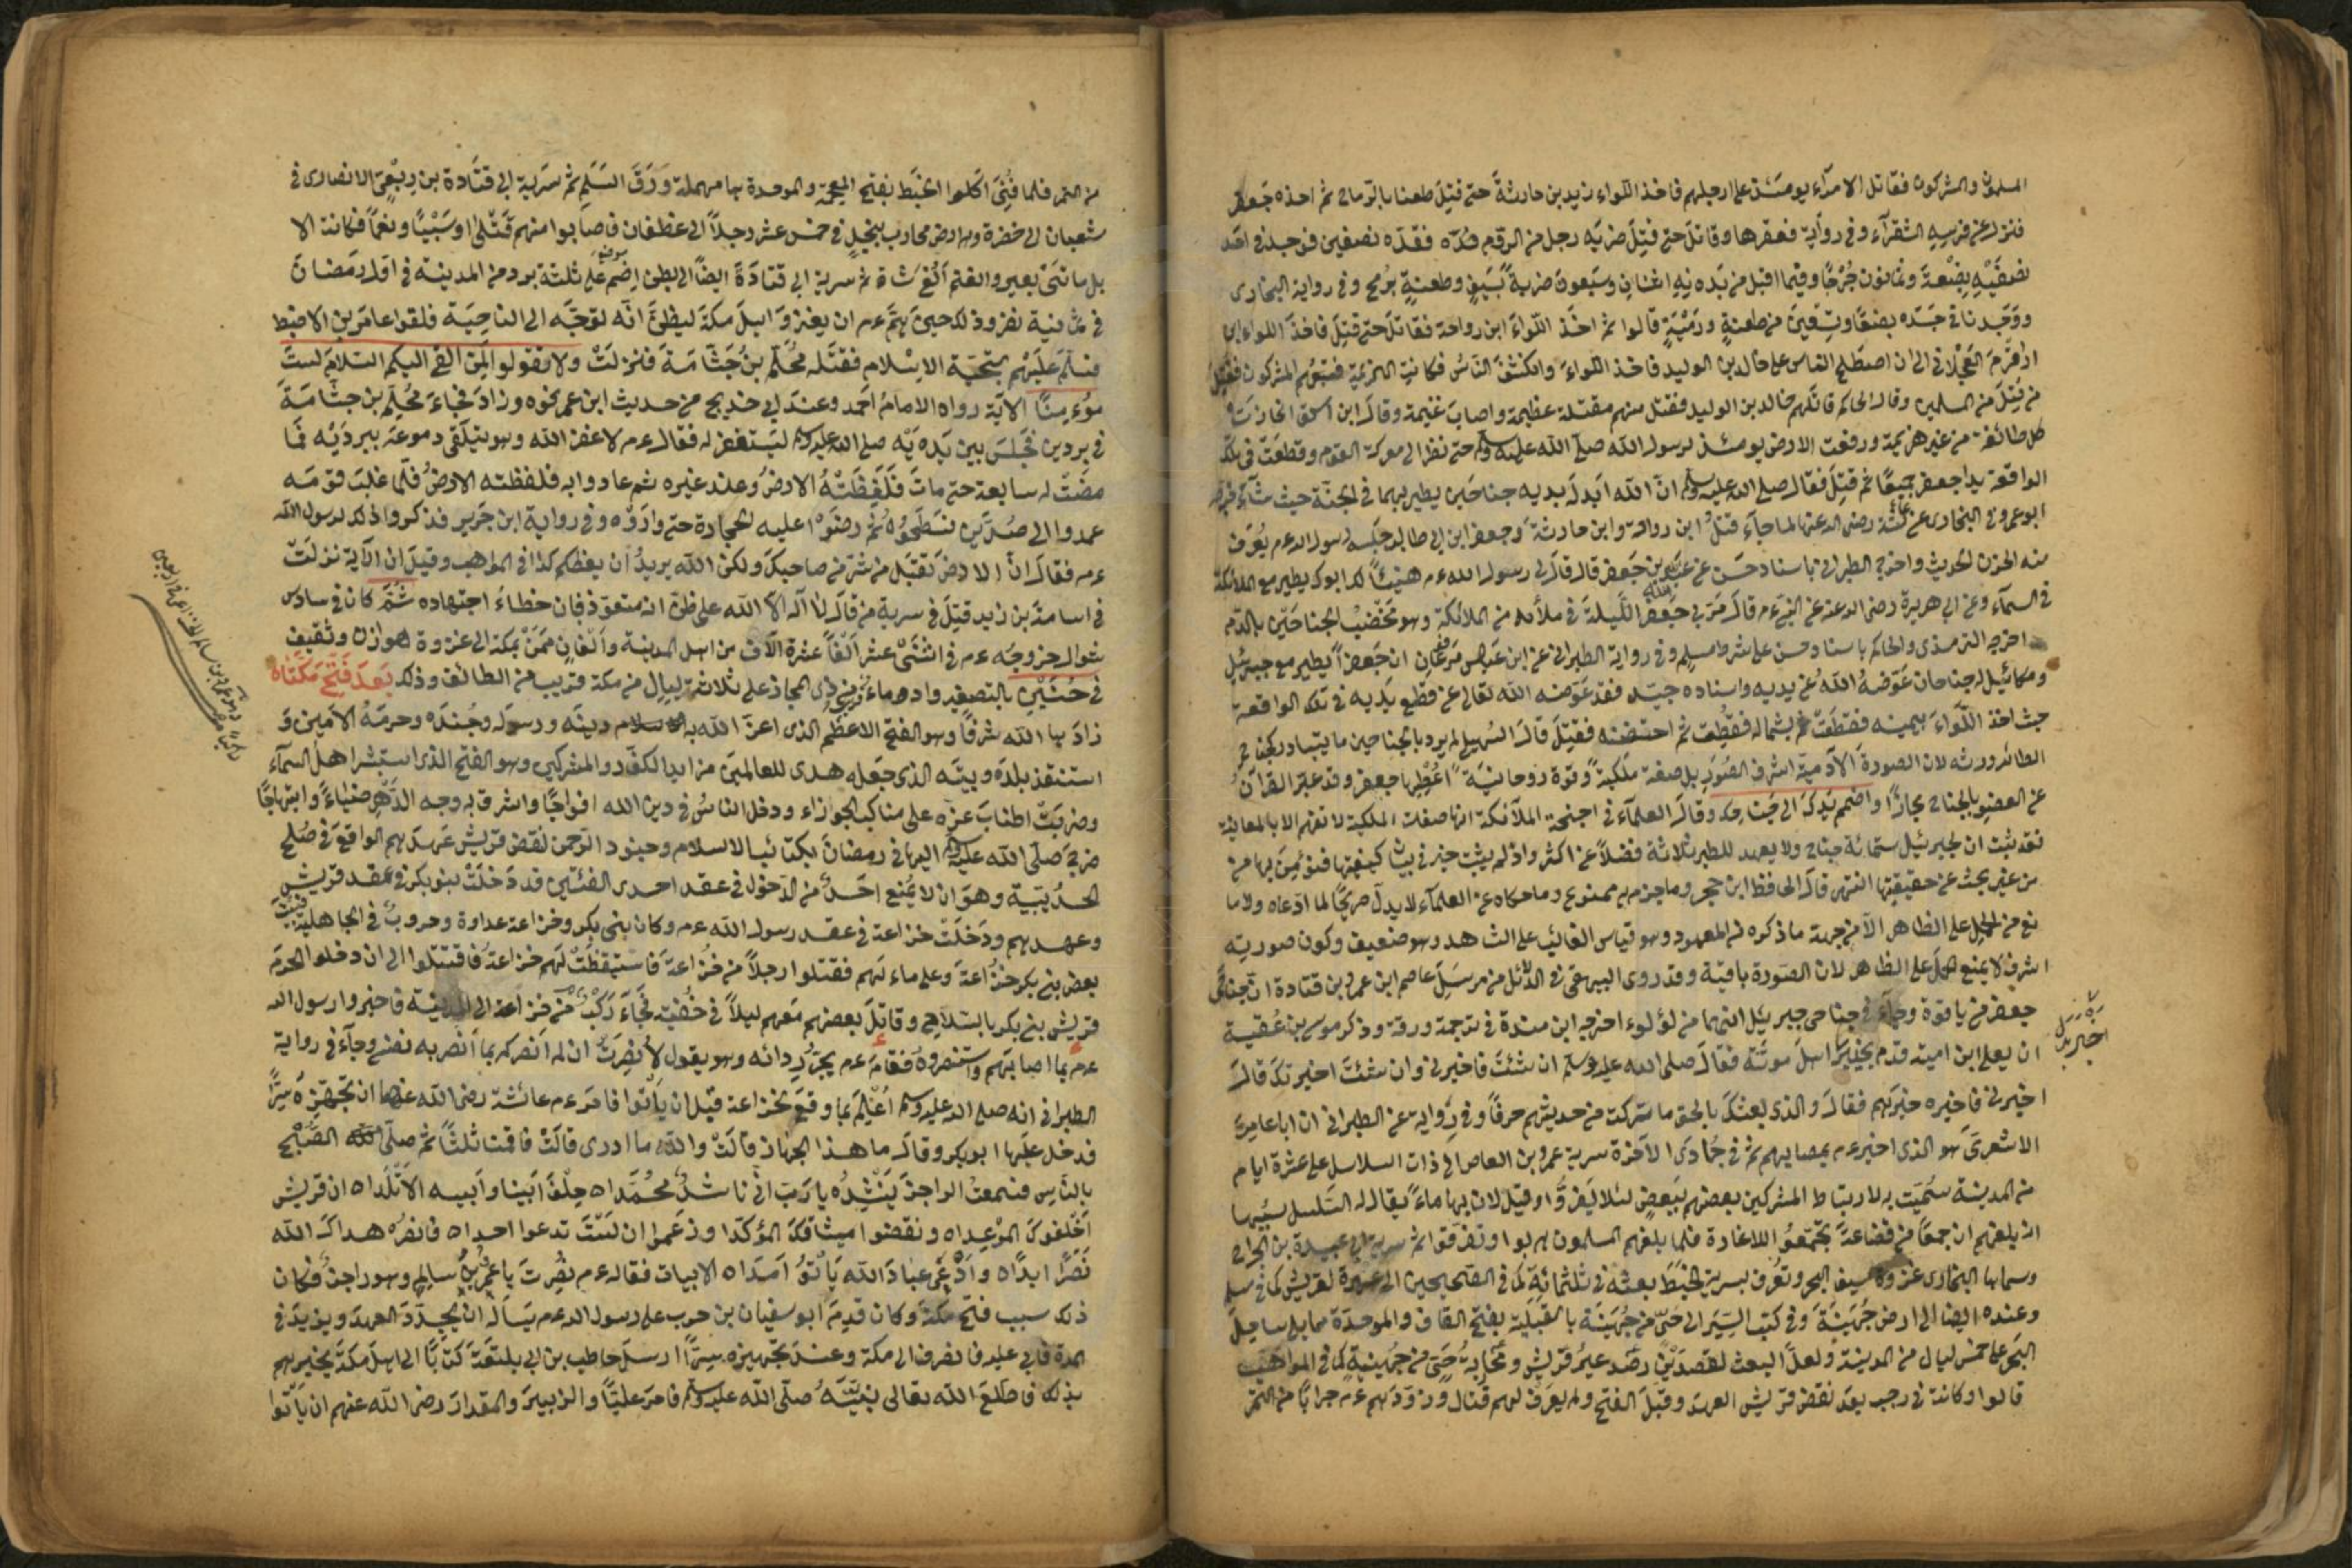 المسلمون والمشركون فقاتل الامرآء يومئذ على ارجلهم فاخذ اللواء زيد بن حارثة حتى قتل طعنا بالرماح ثم اخذه جعفر
فنزل عن فرسه الشقرآء وفى رواية فعقرها وقاتل حتى قتل ضربه رجل من الروم فقده نصفين فوجد فى احد
نصفيه بضعة وثمانون جرحا وفيما اقبل من بدنه اثنان وسبعون ضربة بسيف وطعنة برمح وفى رواية البخارى
ووجدنا فى جسده بضعا وتسعين من طعنة ورمية قالوا ثم اخذ اللواء ابن رواحة فقاتل حتى قتل فاخذ اللواء ابن
ارقم العجلانى الى ان اصطلح الناس على خالد بن الوليد فاخذ اللواء وانكشف الناس فكانت الهزيمة فتبعهم المشركون فقتل
من قتل من المسلمين وقال الحاكم قاتلهم خالد بن الوليد فقتل منهم مقتلة عظيمة واصاب غنيمة وقال ابن اسحق انحازت
كل طائفة من غير هزيمة ورفعت الارض يومئذ لرسول الله صلى الله عليه وسلم حتى نظر الى معركة القوم وقطعت فى تلك
الواقعة يدا جعفر جميعا ثم قتل فقال صلى الله عليه وسلم ان الله ابدل بديه جناحين يطير بهما فى الجنة حيث شآء
ابو عمر وفى البخارى عن عائشة رضى الله عنها لما جآء قتل ابن رواحة وابن حارثة وجعفر ابن ابى طالب جلس رسول الله عم يعرف
منه الحزن الحديث واخرج الطبرانى باسناد حسن عن عبد الله بن جعفر قال قال لى رسول الله عم هنيئا لك ابوك يطير مع الملائكة
فى السمآء وعن ابى هريرة رضى الله عنه عن النبى عم قال مر بى جعفر الليلة فى ملأ من الملائكة وهو مخضب الجناحين بالدم
اخرجه الترمذى والحاكم باسناد حسن على شرط مسلم وفى رواية الطبرانى عن ابن عباس مرفوعا ان جعفرا يطير مع جبرئيل
وميكائيل له جناحان عوضه الله عن يديه واسناده جيد فقد عوضه الله تعالى عن قطع يديه فى تلك الواقعة
حيث اخذ اللواء بيمينه فقطعت ثم بشماله فقطعت ثم احتضنه فقتل قال السهيلى لم يرد بالجناحين ما يتبادر
الطائر وريشه لان الصورة الآدمية اشرف الصور بل صفة ملكية وقوة روحانية اعطيها جعفر وقد عبر القرآن
عن العضو بالجناح مجازا واضمم يدك الى جناحك وقال العلمآء فى اجنحة الملآئكة انها صفات الملكية لا تفهم الا بالمعاينة
فقد ثبت ان لجبرئيل ستمائة جناح ولا يعهد للطير ثلاثة فضلا عن اكثر واذ لم يثبت خبر فى بيان كيفيتها فنؤمن بها من
من غير بحث عن حقيقتها انتهى قال الحافظ ابن حجر وما جزم به ممنوع وما حكاه عن العلمآء لا يدل صريحا لما ادعاه ولا ما
نع من الحمل على الظاهر الا من جهة ما ذكره من المعهود وهو قياس الغائب على الشاهد وهو ضعيف وكون صورته
اشرف لا يمنع حمله على الظاهر لان الصورة باقية وقد روى البيهقى فى الدلائل من مرسل عاصم ابن عمر بن قتادة ان جناحى
جعفر من ياقوة وجآء فى جناحى جبرئيل انهما من لؤلوء اخرجه ابن مندة فى ترجمة ورقة وذكر موسى بن عقبة
ان يعلى ابن امية قدم بخبر اهل موتة فقال صلى الله عليه وسلم ان شئت فاخبرنى وان شئت اخبرتك قال
اخبرنى فاخبره خبرهم فقال والذى بعثك بالحق ما تركت من حديثهم حرفا وفى رواية عن الطبرانى ان ابا عامر
الاشعرى هو الذى اخبر عم بمصابهم ثم فى جمادى الآخرة سرية عمرو بن العاص الى ذات السلاسل على عشرة ايام
من المدينة سميت به لارتباط المشركين بعضهم ببعض لئلا يفروا وقيل لان بها ماء يقال له السلسل سببها
انه بلغهم ان جمعا من قضاعة تجمعوا للاغارة فلما بلغهم المسلمون هربوا وتفرقوا ثم سرية ابى عبيدة بن الجراح
وسماها البخارى غزوة سيف البحر وتعرف بسرية الخبط بعثه فى ثلثمائة كما فى الصحيحين الى عير لقريش كما فى مسلم
وعنده ايضا الى ارض جهينة وفى كتب السير الى حى من جهينة بالقبلية بفتح القاف والموحدة مما يلى ساحل
البحر على خمس ليال من المدينة ولعل البعث لقصدين رصد عير قريش ومحاربة حى من جهينة كما فى المواهب
قالوا وكانت فى رجب بعد نقض قريش العهد وقبل الفتح ولم يعرف لهم قتال وزودهم عم جرابا من التمر
من التمر فلما فنى اكلوا الخبط بفتح المعجمة والموحدة بها مهملة ورق السلم ثم سرية ابى قتادة بن ربعى الانصارى فى
شعبان الى خضرة وهى ارض محارب بنجد فى خمس عشر رجلا الى غطفان فاصابوا منهم قتلى وسبيا ونعما فكانت الا
بل مائتى بعير والغنم الفى شاة ثم سرية ابى قتادة ايضا الى بطن اضم على ثلثة برد من المدينة فى اول رمضان
فى ثمانية نفر وذلك حين هم عم ان يغزو اهل مكة ليظن انه توجه الى الناحية فلقوا عامر بن الاضبط
فسلم عليهم بتحية الاسلام فقتله محلم بن جثامة فنزلت ولا تقولوا لمن القى اليكم السلام لست
مؤمنا الآية رواه الامام احمد وعند ابن جرير من حديث ابن عمر نحوه وزاد فجاء محلم بن جثامة
فى بردين فجلس بين يديه صلى الله عليه وسلم ليستغفر له فقال عم لا غفر الله وهو يتلقى دموعه ببرديه فما
مضت له سابعة حتى مات فلفظته الارض وعند غيره ثم عادوا به فلفظته الارض فلما غلب قومه
عمدوا الى صدين فسطحوه ثم رضوا عليه الحجارة حتى واروه وفى رواية ابن جرير فذكروا ذلك لرسول الله
عم فقال ان الارض تقبل من شر من صاحبكم ولكن الله يريد ان يعظكم كذا فى المواهب وقيل ان الآية نزلت
فى اسامة بن زيد قتل فى سرية من قال لا اله الا الله على ظن انه متعوذ فان خطاء اجتهاده ثم كان فى سادس
شوال خروجه عم فى اثنى عشر الفا عشرة الآف من اهل المدينة والفان ممن بمكة الى غزوة هوازن وثقيف
فى حنين بالتصغير واد وماء قرب ذى المجاز على ثلاث ليال من مكة قريب من الطائف وذلك بعد فتح مكة
زاد بها الله شرفا وهو الفتح الاعظم الذى اعز الله به دينه ورسوله وجنده وحرمه الامين و
استنقذ بلده وبيته الذى جعله هدى للعالمين من ايدى الكفار والمشركين وهو الفتح الذى استبشر اهل السمآء
وضربت اطناب عزه على مناكب الجوزاء ودخل الناس فى دين الله افواجا واشرق به وجه الدهر ضياء وابتهاجا
خرج صلى الله عليه وسلم اليها فى رمضان بكتائب الاسلام وجنود الرحمن لنقض قريش عهدهم الواقع فى صلح
الحديبية وهو ان لا يمنع احد من الدخول فى عقد احدى الفئتين قد دخلت بنو بكر فى عقد قريش
وعهدهم ودخلت خزاعة فى عقد رسول الله عم وكان بين بنى بكر وخزاعة عداوة وحروب فى الجاهلية فبيت
بعض بنى بكر خزاعة وعلى ماء لهم فقتلوا رجلا من خزاعة فاستيقظت لهم خزاعة فاقتتلوا الى ان دخلوا الحرم
قريش بنى بكر بالسلاح وقاتل بعضهم معهم ليلا فى خفية فجآء ركب من خزاعة الى المدينة فاخبروا رسول الله
عم بما اصابهم واستنصروه فقام عم يجر ردائه وهو يقول لا نصرت ان لم انصركم بما انصر به نفسى وجآء فى رواية
الطبرانى انه صلى الله عليه وسلم اعلم بما وقع لخزاعة قبل ان يأتوا فامر عم عائشة رضى الله عنها ان تجهزه سرا
فدخل عليها ابو بكر وقال ما هذا الجهاز قالت والله ما ادرى قالت فاقمنا ثلثا ثم صلى الصبح
بالناس فسمعت الراجز ينشده يا رب انى ناشد محمداه حلف ابينا وابيه الاتلداه ان قريش
اخلفوك الموعداه ونقضوا ميثاقك المؤكدا وزعموا ان لست تدعوا احداه فانصر هداك الله
نصرا ابداه وادعى عباد الله يأتوا امداه الابيات فقال عم نصرت يا عمرو بن سالم وهو راجز فكان
ذلك سبب فتح مكة وكان قدم ابو سفيان بن حرب على رسول الله عم يسأله ان يجدد العهد ويزيد فى
المدة فابى عليه فانصرف الى مكة وعند تجهيزه سرا ارسل حاطب بن ابى بلتعة كتابا الى اهل مكة يخبرهم
بذلك فاطلع الله تعالى نبيه صلى الله عليه وسلم فامر عليا والزبير والمقداد رضى الله عنهم ان يأتوا